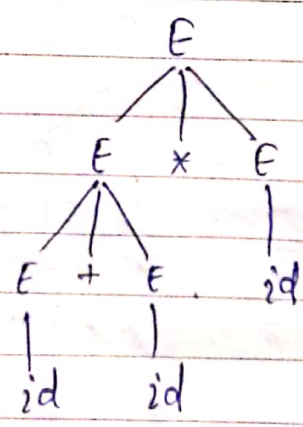 E
E * E
E + E id
id id